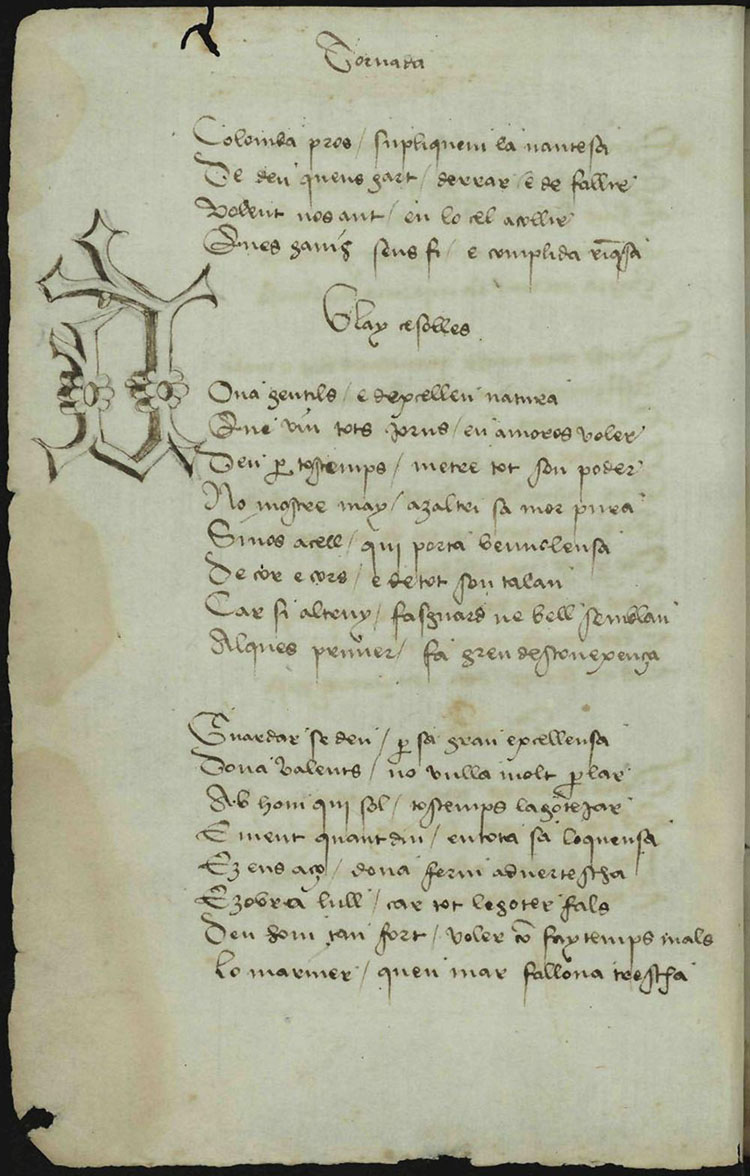 Tornada
Colomba pros / supliquem la nautesa
De deu quens gart / derrar / e de fallir
Volent nos aut / en lo cel acollir
Qnes gauig sens fi / e complida riq̃sa
Blay ceselles
Dona gentils / e dexcellen natura
Que viu tots jorns / en amoros voler
Deu ꝑ tostemps / metre tot son poder
No mostre may / azaltri sa mor pura
Sinos acell / qui porta benuolensa
De cor e cors / e de tot son talan
Car si alteny / fa sguard ne bell semblan
Alques primer / fa greu desconexença
Guardar se deu / ꝑ sa gran excellensa
Dona valents / no vulla molt ꝑlar
Ab hom qui sol / tostemps lagotejar
E ment quant diu / en tota sa loquensa
Ez ens aço / dona ferm aduertescha
Ez obra lull / car tot legoter fals
Deu hom tan fort / voler cõ fay temps mals
Lo mariner / quen mar fallona trescha